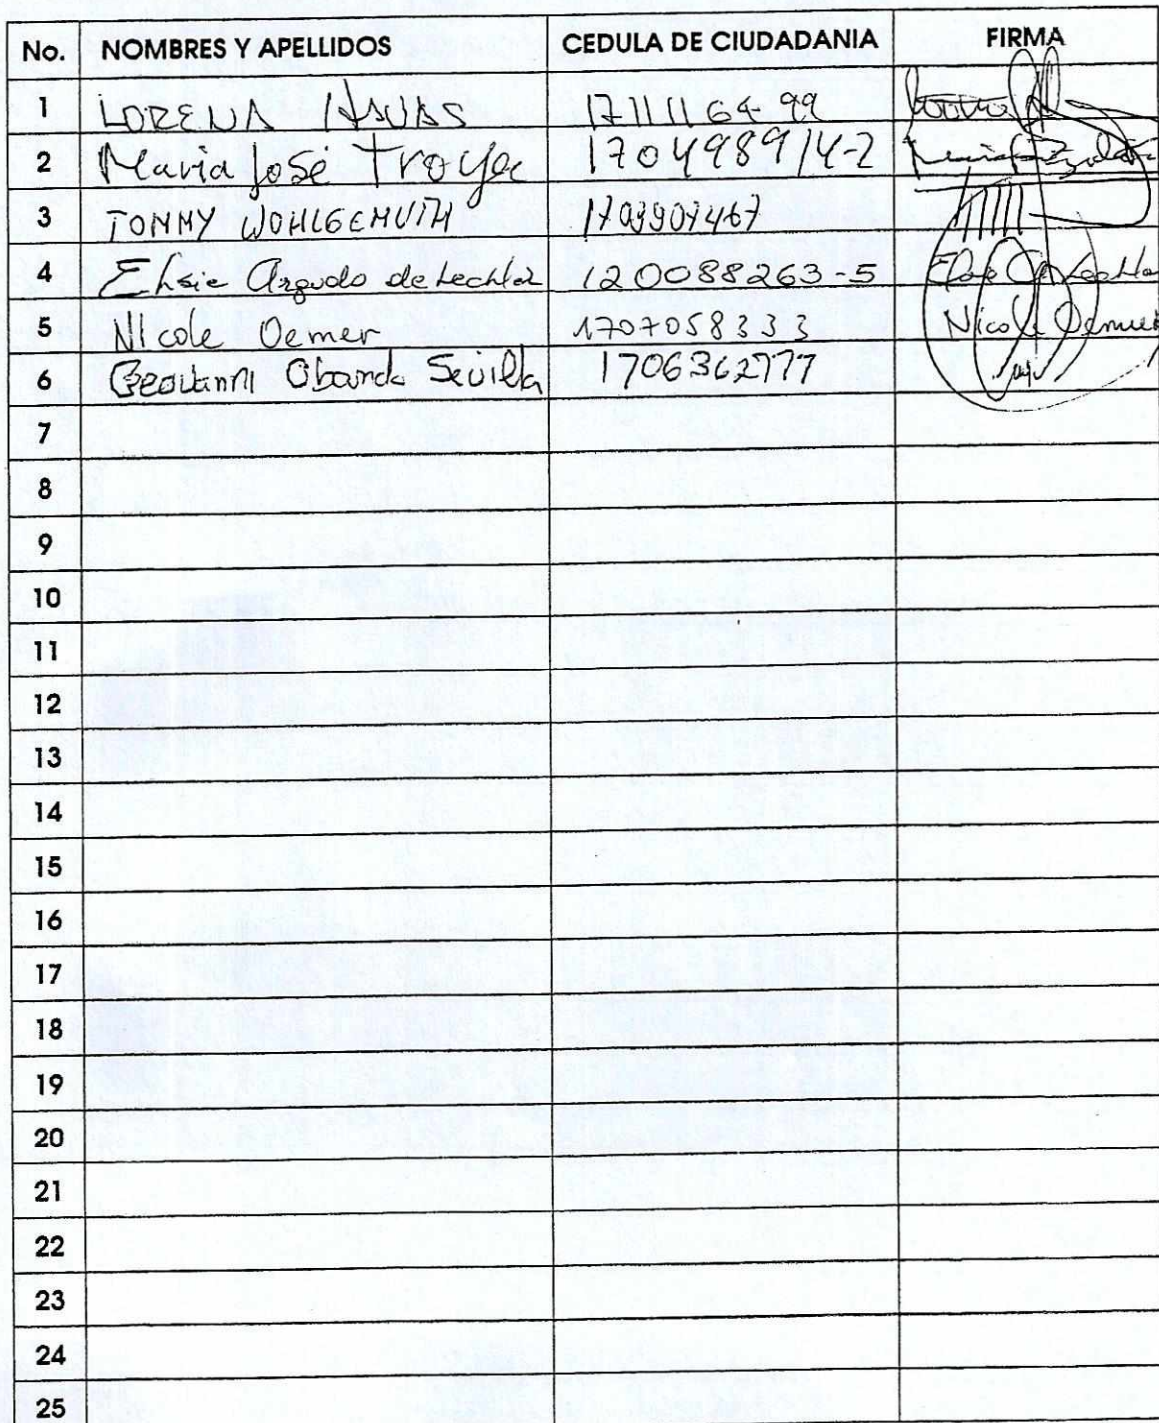 No. NOMBRES Y APELLIDOS CEDULA DE CIUDADANIA FIRMA
1 LORENA 171116499
2 Maria José Troya 170498914-2
3 TOMMY WOHLGEMUTH 1703907467
4 Elsie Argudo de Lechler 120088263-5
5 Nicole Oemer 1707058333 Nicole Oemer
6 Geovanni Obando Sevilla 1706362777
7
8
9
10
11
12
13
14
15
16
17
18
19
20
21
22
23
24
25